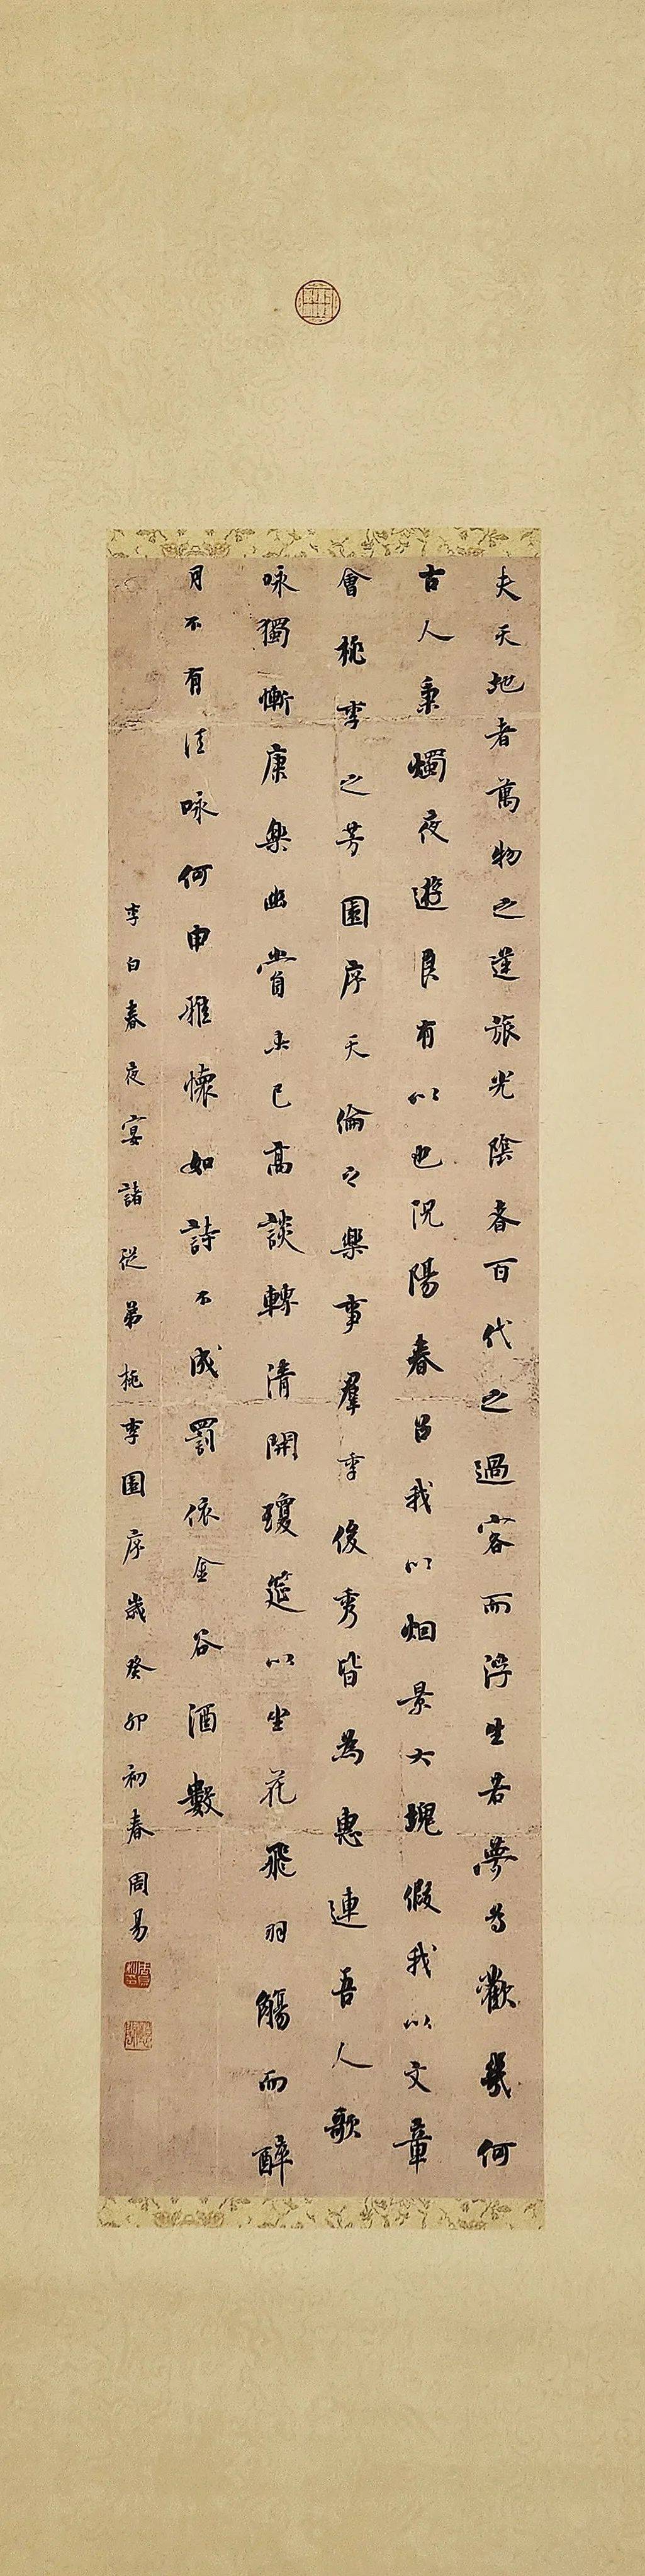 夫天地者萬物之逆旅光陰者百代之過客而浮生若夢為歡幾何
古人秉燭夜遊良有以也況陽春召我以烟景大塊假我以文章
會桃李之芳園序天倫之樂事羣季俊秀皆為惠連吾人歌
咏獨慚康樂幽賞未已高談轉清開瓊筵以坐花飛羽觴而醉
月不有佳咏何申雅懷如詩不成罰依金谷酒數
李白春夜宴諸從弟桃李園序歲癸卯初春周易